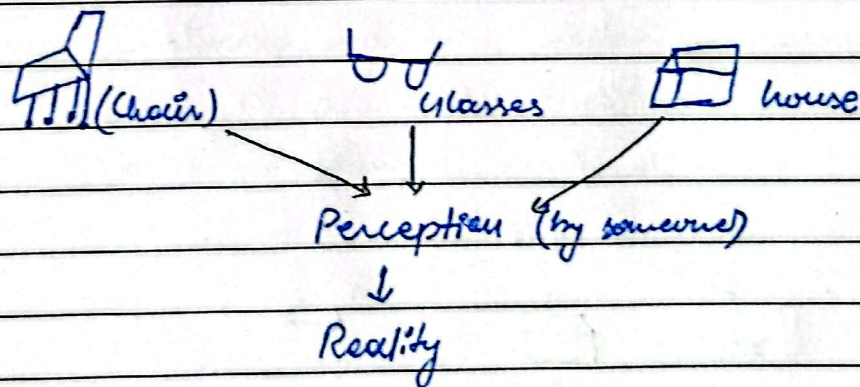 (Chair)
Glasses
house
Perception (by someone)
Reality